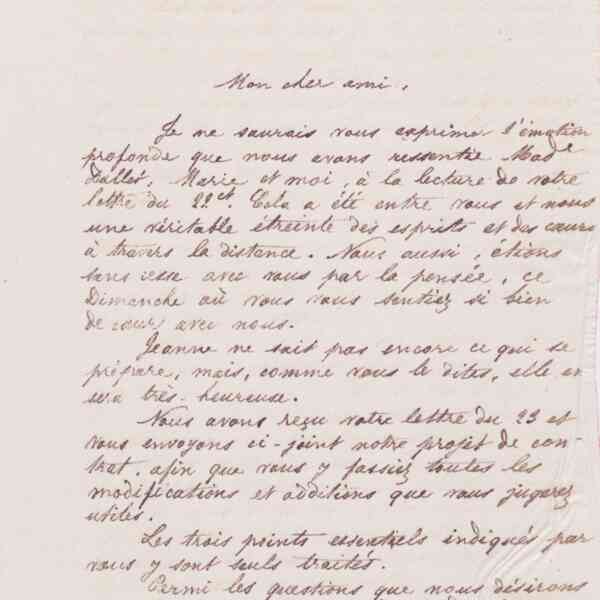 Mon cher ami,
Je ne saurais vous exprimer l'émotion
profonde que nous avons ressentie Made
Dallet, Marie et moi, à la lecture de votre
lettre du 22ct. Cela a été entre vous et nous
une véritable étreinte des esprits et des cœurs
à travers la distance. Nous aussi, étions
sans cesse avec vous par la pensée, ce
Dimanche où vous vous sentiez si bien
de cœur avec nous.
Jeanne ne sait pas encore ce qui se
prépare, mais, comme vous le dites, elle en
sera très-heureuse.
Nous avons reçu votre lettre du 23 et
vous envoyons ci-joint notre projet de con-
trat, afin que vous y fassiez toutes les
modifications et additions que vous jugerez
utiles.
Les trois points essentiels indiqués par
vous y sont seuls traités.
Parmi les questions que nous désirons